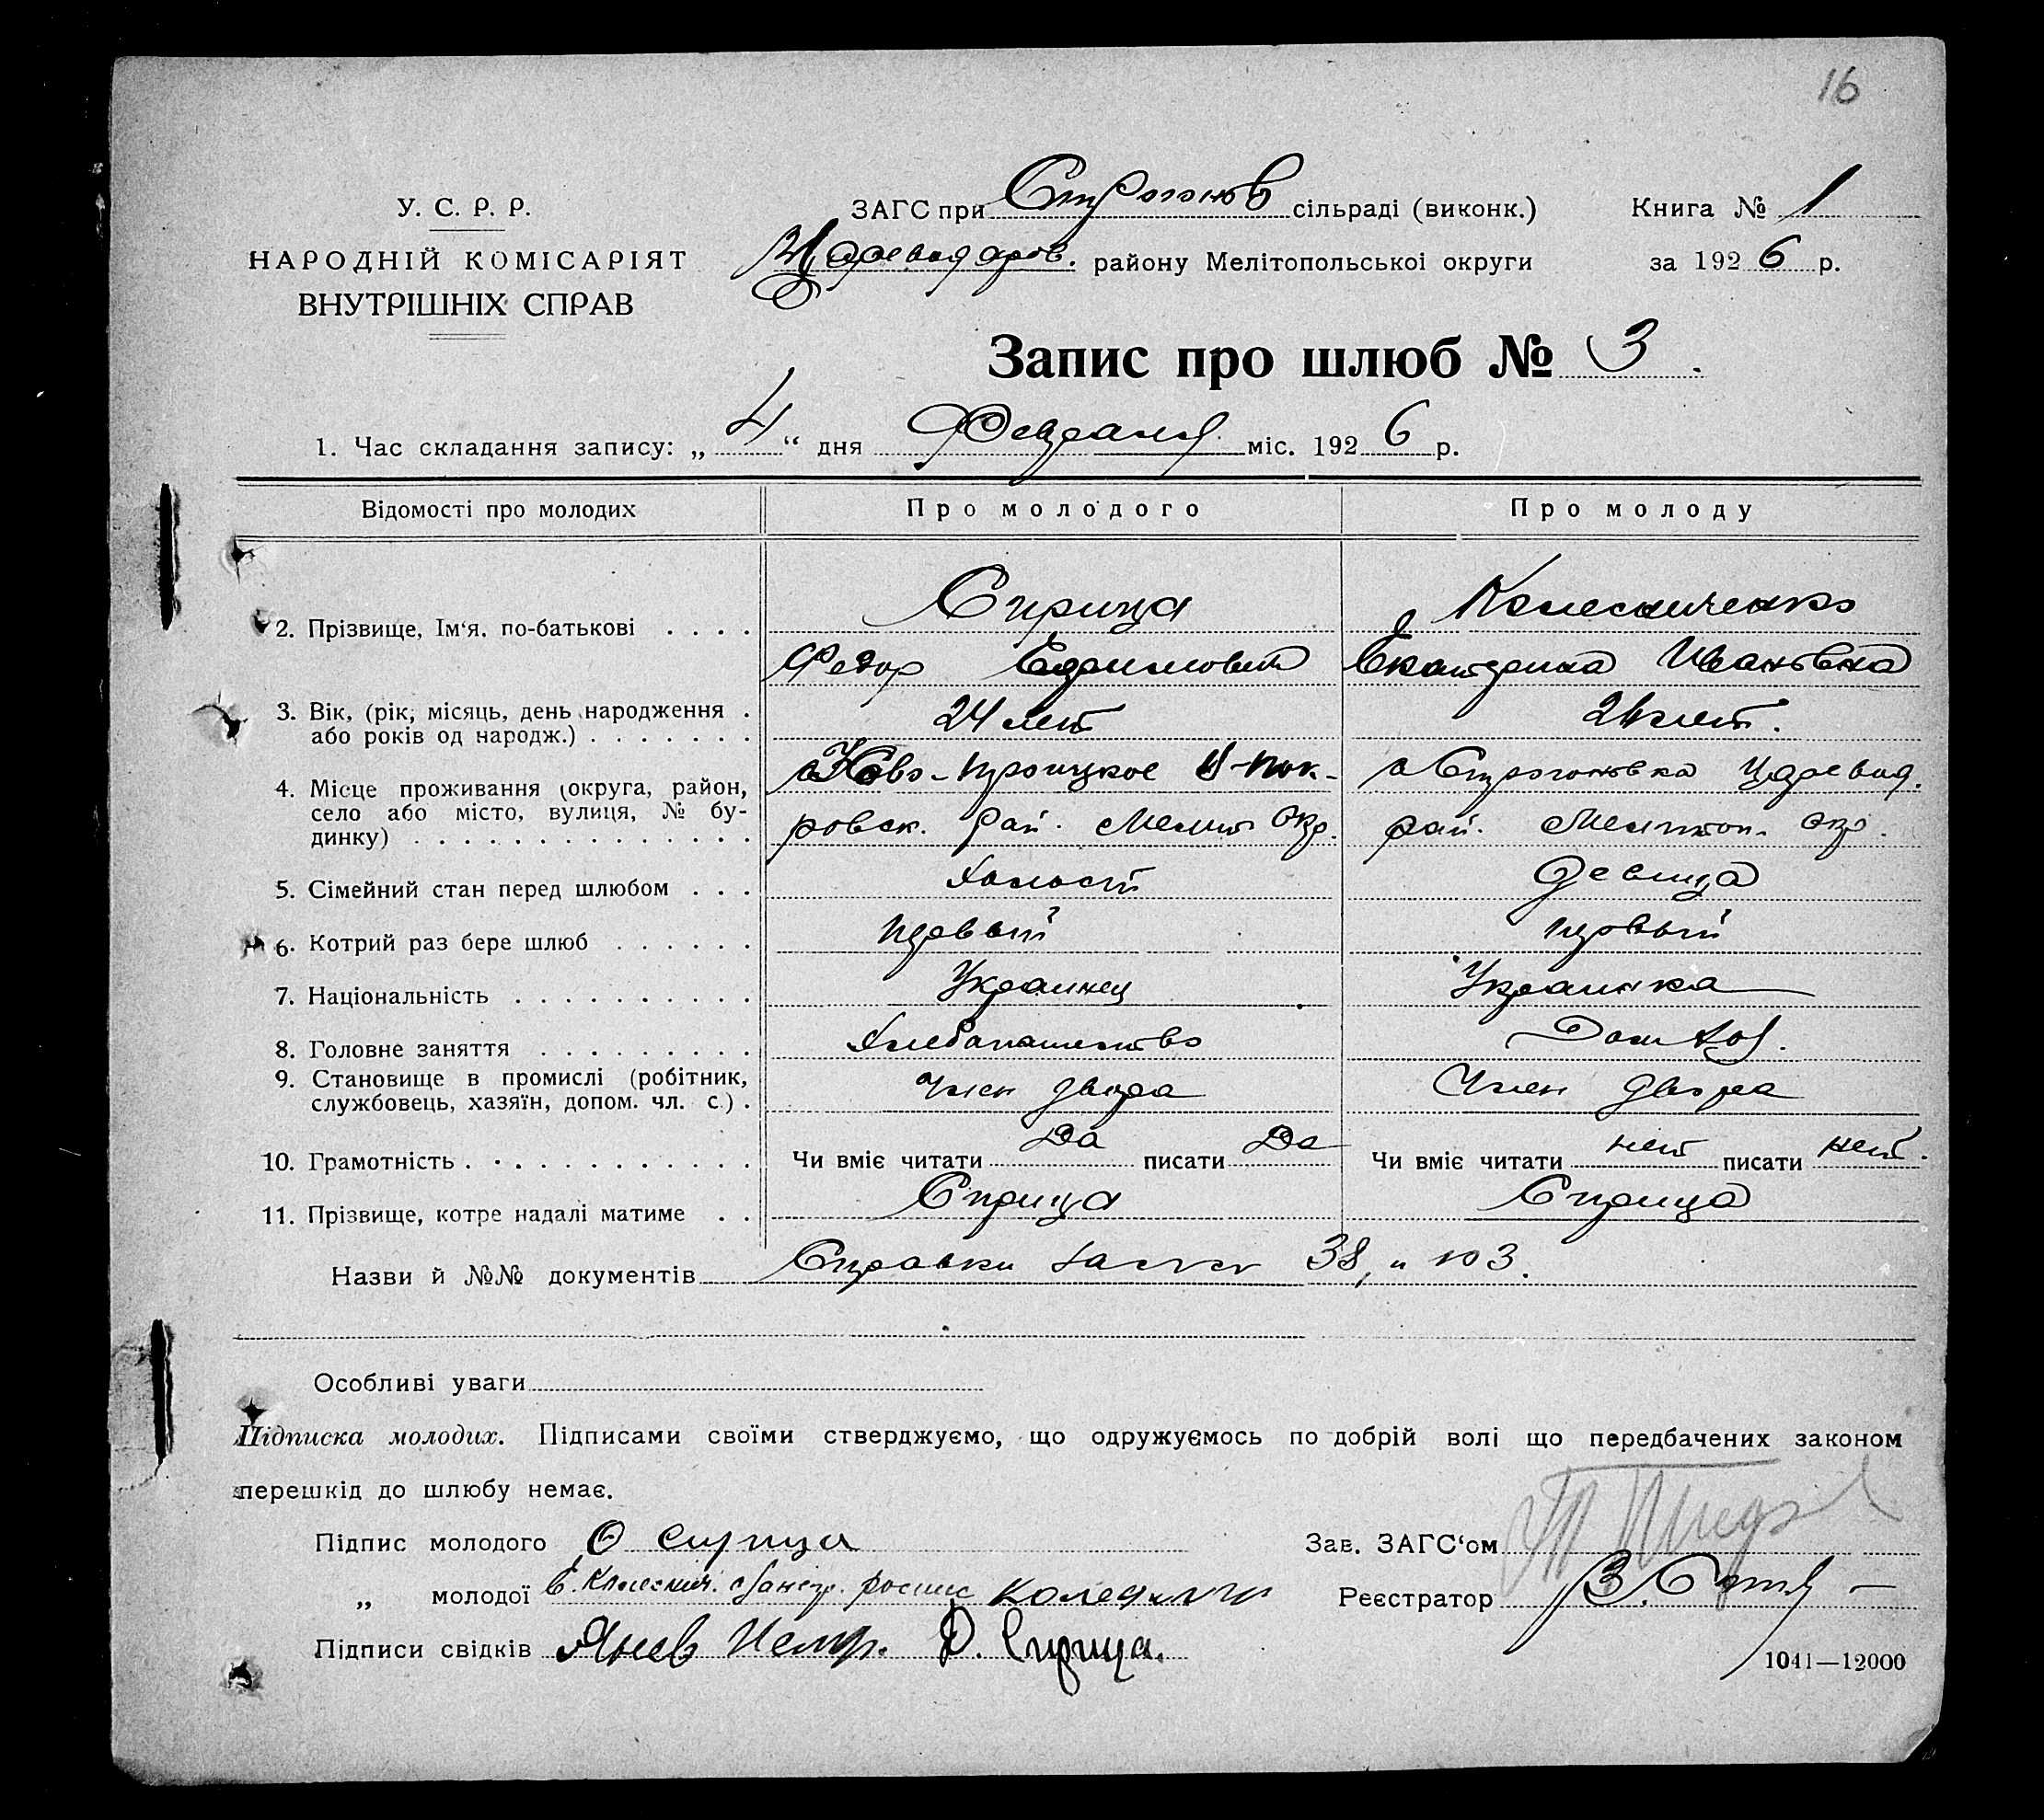 16
У. С. Р. Р.
НАРОДНІЙ КОМІСАРІЯТ
ВНУТРІШНІХ СПРАВ
ЗАГС при Строгонов сільраді (виконк.) Книга № 1
Цареводаров. району Мелітопольської округи за 1926 р.
Запис про шлюб № 3.
1. Час складання запису: „4“ дня Февраля міс. 1926 р.
Відомості про молодих Про молодого Про молоду
2. Прізвище, Ім‘я. по-батькові . . . . Сприца Колесниченко
Федор Ефимович Екатерина Ивановна
3. Вік, (рік, місяць, день народження . або років од народж.) . . . . . . . 24 лет лет.
4. Місце проживання (округа, район, село або місто, вулиця, № будинку) . . . . . . . . . . . . . .
Ново-Троицкое Покровск. Рай. Мелит Окр. Строгоновка Царевод. рай. Мелитоп. окр.
5. Сімейний стан перед шлюбом . . . Холост Девица
6. Котрий раз бере шлюб . . . . . . первый первый
7. Національність . . . . . . . . . . Украинец Украинка
8. Головне заняття . . . . . . . . . Хлебопашество Дом хоз.
9. Становище в промислі (робітник, службовець, хазяїн, допом. чл. с.) . Член двора Член двора
10. Грамотність . . . . . . . . . . . . Чи вміє читати Да писати Да Чи вміє читати нет писати нет.
11. Прізвище, котре надалі матиме . . Сприца Сприца
Назви й №№ документів Справки 38, и 103.
Особливі уваги
Підписка молодих. Підписами своїми стверджуємо, що одружуємось по добрій волі що передбачених законом
перешкід до шлюбу немає.
Підпис молодого Сприца Зав. ЗАГС‘ом
„ молодої Е. Колеснич. Реєстратор
Підписи свідків Д. Сприца.
1041—12000